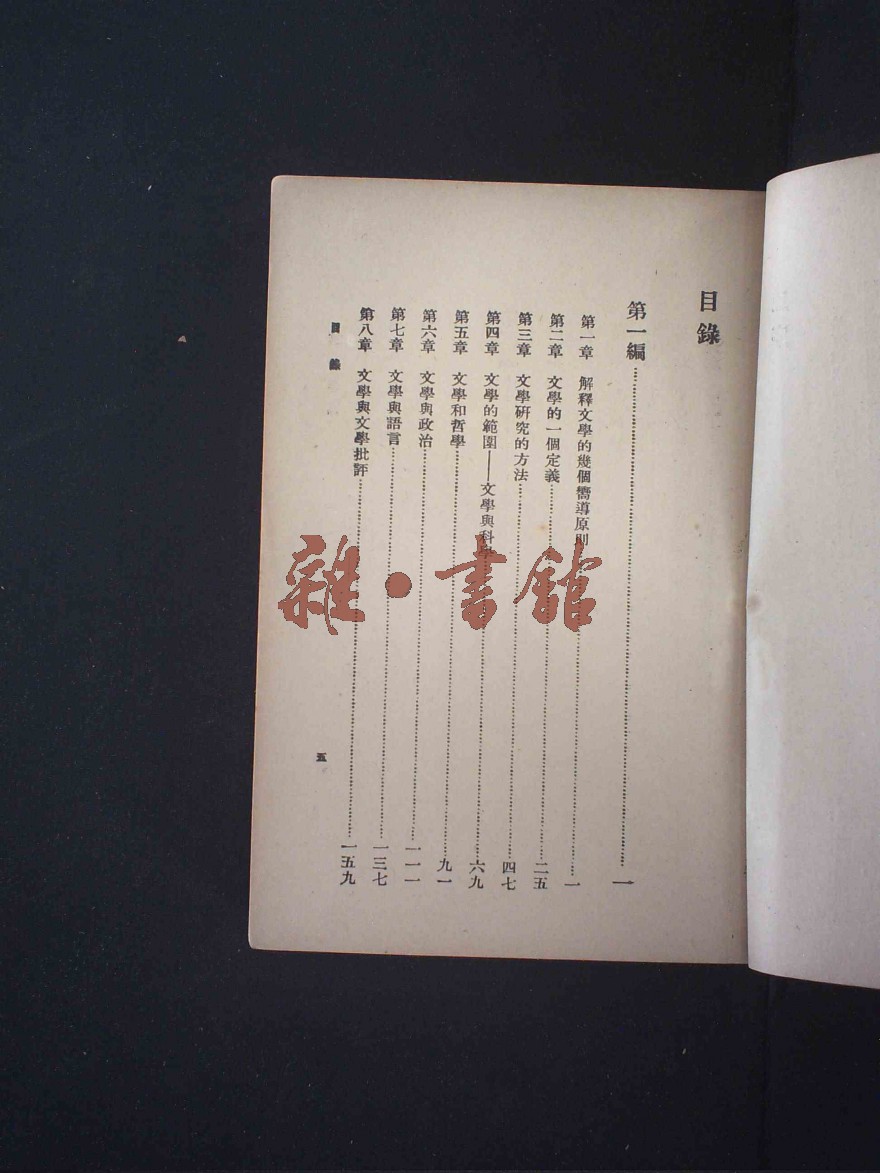 目錄
第一編……一
第一章 解釋文學的幾個嚮導原則……一
第二章 文學的一個定義……二五
第三章 文學研究的方法……四七
第四章 文學的範圍——文學與科學……六九
第五章 文學和哲學……九一
第六章 文學與政治……一一一
第七章 文學與語言……一三七
第八章 文學與文學批評……一五九
目錄
五
雜·書館